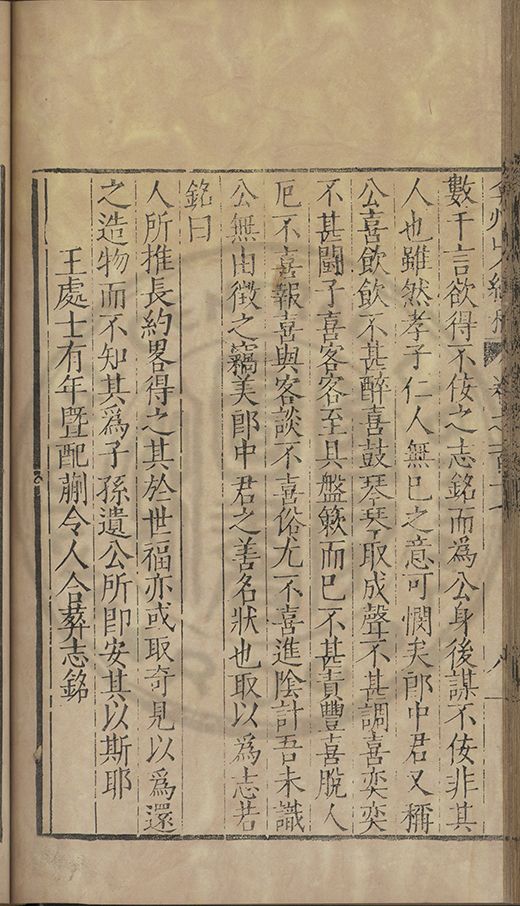 數千言欲得不佞之志銘而為公身後謀不佞非其
人也雖然孝子仁人無已之意可憫矣郎中君又稱
公喜飲飲不甚醉喜鼓琴琴取成聲不甚調喜奕奕
不甚鬪子喜客客至具盤簌而已不甚責豐喜脫人
厄不喜報喜與客談不喜俗尤不喜進陰計吾未識
公無由徵之竊美郎中君之善名狀也取以為志若
銘曰
人所推長約畧得之其於世福亦或取奇見以為還
之造物而不知其為子孫遺公所即安其以斯耶
王處士有年暨配蒯令人合葬志銘